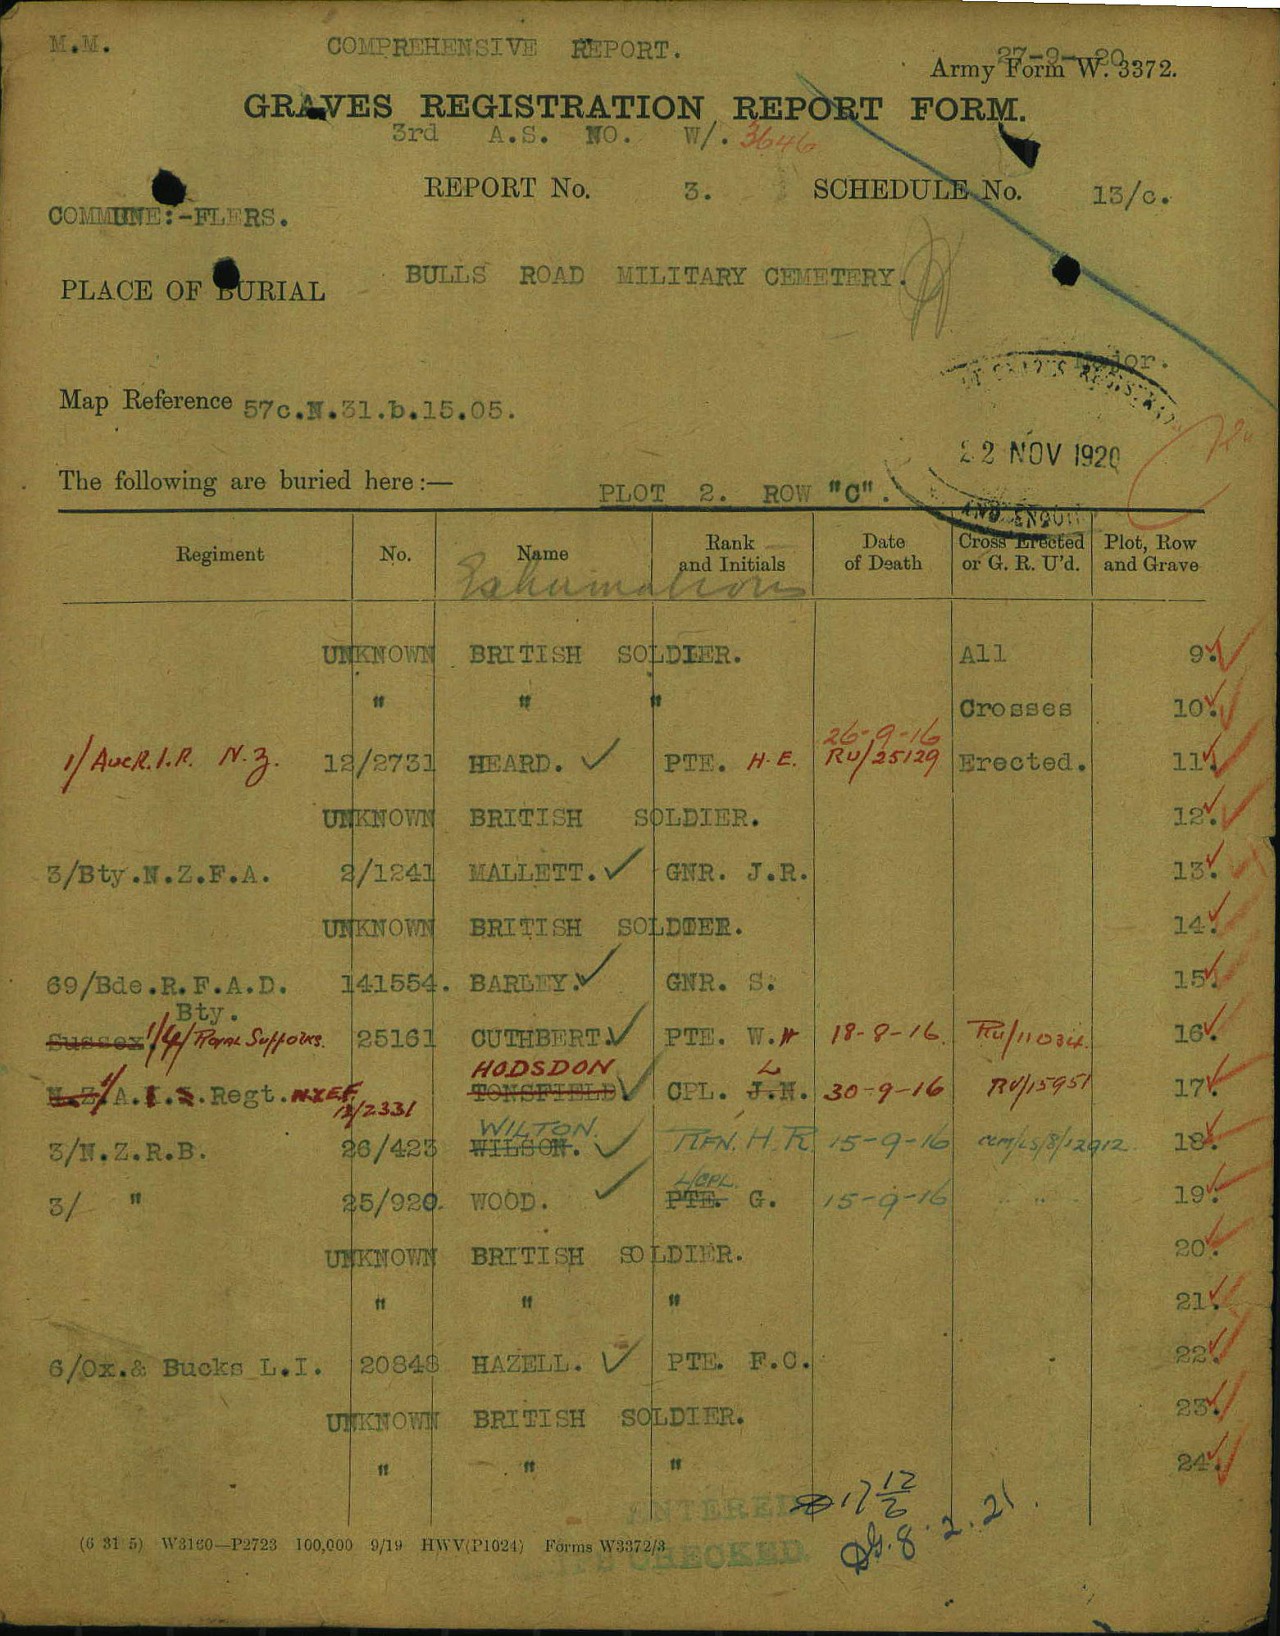 M.M.
COMPREHENSIVE REPORT.
27-9-20
Army Form W. 3372.
GRAVES REGISTRATION REPORT FORM.
3rd A.S. NO. W/. 3646
REPORT No. 3. SCHEDULE No. 13/c.
COMMUNE:-FLERS.
PLACE OF BURIAL BULLS ROAD MILITARY CEMETERY.
Major.
Map Reference 57c.N.31.b.15.05.
22 NOV 1920
AND ENQUI
The following are buried here:—
PLOT 2. ROW "C".
Regiment No. Name Rank and Initials Date of Death Cross Erected or G. R. U'd. Plot, Row and Grave
Exhumations
UNKNOWN BRITISH SOLDIER. All 9.
" " " Crosses 10.
26-9-16
1/Auck.I.R. N.Z. 12/2731 HEARD. PTE. H.E. RU/25129 Erected. 11.
UNKNOWN BRITISH SOLDIER. 12.
3/Bty.N.Z.F.A. 2/1241 MALLETT. GNR. J.R. 13.
UNKNOWN BRITISH SOLDIER. 14.
69/Bde.R.F.A.D. 141554. BARLEY. GNR. S. 15.
Bty.
Sussex 1/4/Royal Suffolks. 25161 CUTHBERT. PTE. W.H 18-8-16. RU/11034. 16.
HODSDON L
N.Z. 1/A.I.S.Regt. NZEF 12/2331 TONSFIELD CPL. J.N. 30-9-16 RU/15951 17.
WILTON.
3/N.Z.R.B. 26/423 WILSON. RFN. H.R 15-9-16 18.
L/CPL.
3/ " 25/920. WOOD. PTE. G. 15-9-16 " 19.
UNKNOWN BRITISH SOLDIER. 20.
" " " 21.
6/Ox.& Bucks L.I. 20848 HAZELL. PTE. F.C. 22.
UNKNOWN BRITISH SOLDIER. 23.
" " " 24.
ENTERED
17 12/6
CHECKED.
8.2.21.
(6 31 5) W3160—P2723 100,000 9/19 HWV(P1024) Forms W3372/3